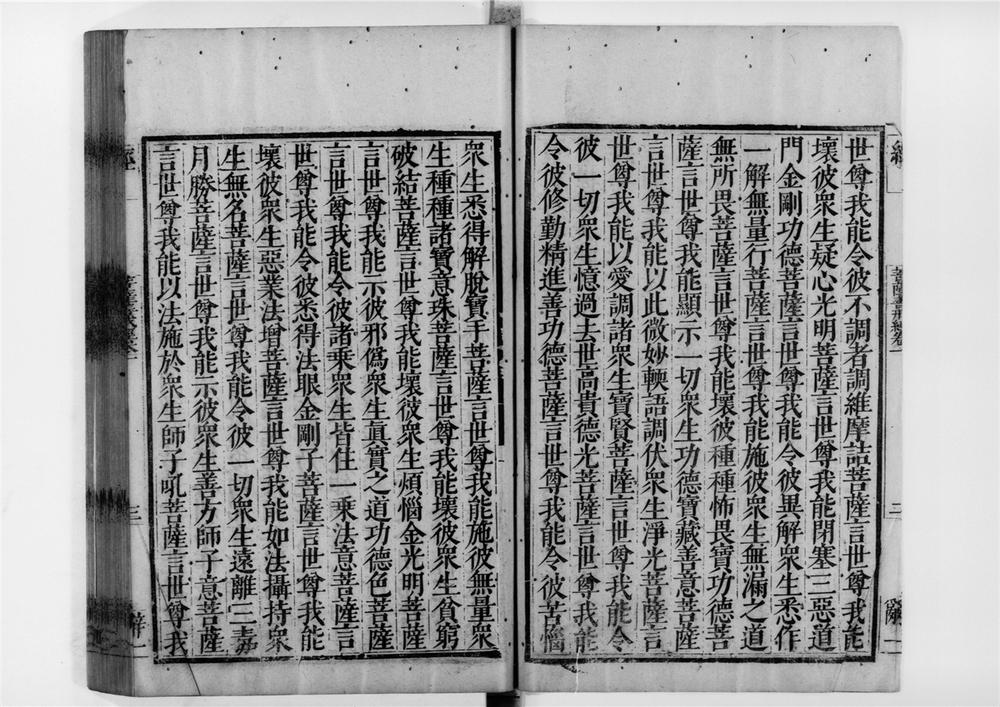 世尊我能令彼不調者調維摩詰菩薩言世尊我能
壞彼衆生疑心光明菩薩言世尊我能閉塞三惡道
門金剛功德菩薩言世尊我能令彼異解衆生悉作
一解無量行菩薩言世尊我能施彼衆生無漏之道
無所畏菩薩言世尊我能壞彼種種怖畏寶功德菩
薩言世尊我能顯示一切衆生功德寶藏善意菩薩
言世尊我能以此微妙輭語調伏衆生淨光菩薩言
世尊我能以愛調諸衆生寶賢菩薩言世尊我能令
彼一切衆生憶過去世高貴德光菩薩言世尊我能
令彼修勤精進善功德菩薩言世尊我能令彼苦惱
經
菩薩善戒經卷一
三
一
衆生悉得解脫寶手菩薩言世尊我能施彼無量衆
生種種諸寶意珠菩薩言世尊我能壞彼衆生貧窮
破結菩薩言世尊我能壞彼衆生煩惱金光明菩薩
言世尊我能示彼邪僞衆生眞實之道功德色菩薩
言世尊我能令彼諸乘衆生皆住一乘法意菩薩言
世尊我能令彼悉得法眼金剛子菩薩言世尊我能
壞彼衆生惡業法增菩薩言世尊我能如法攝持衆
生無名菩薩言世尊我能令彼一切衆生遠離三毒
月勝菩薩言世尊我能示彼衆生善方師子意菩薩
言世尊我能以法施於衆生師子吼菩薩言世尊我
經
三